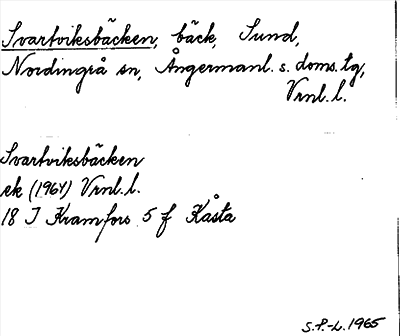 Svartviksbäcken, bäck, Sund,
Nordingrå sn, Ångermanl. s. doms. tg,
Vrnl. l.
Svartviksbäcken
ek (1964) Vrnl. l.
18 J Kramfors 5 f Kåsta
S.P.-L. 1965